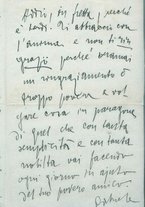 Addio, in fretta, perché
è tardi. Ti abbraccio con
l'anima e non ti rin
grazio perché bramai
un ringraziamento è
troppo povera e vol
gare cosa in paragone
di quel che con tanta
semplicità e con tanta
nobiltà vai facendo
ogni giorno in ajuto
del tuo povero amico
Gabriele